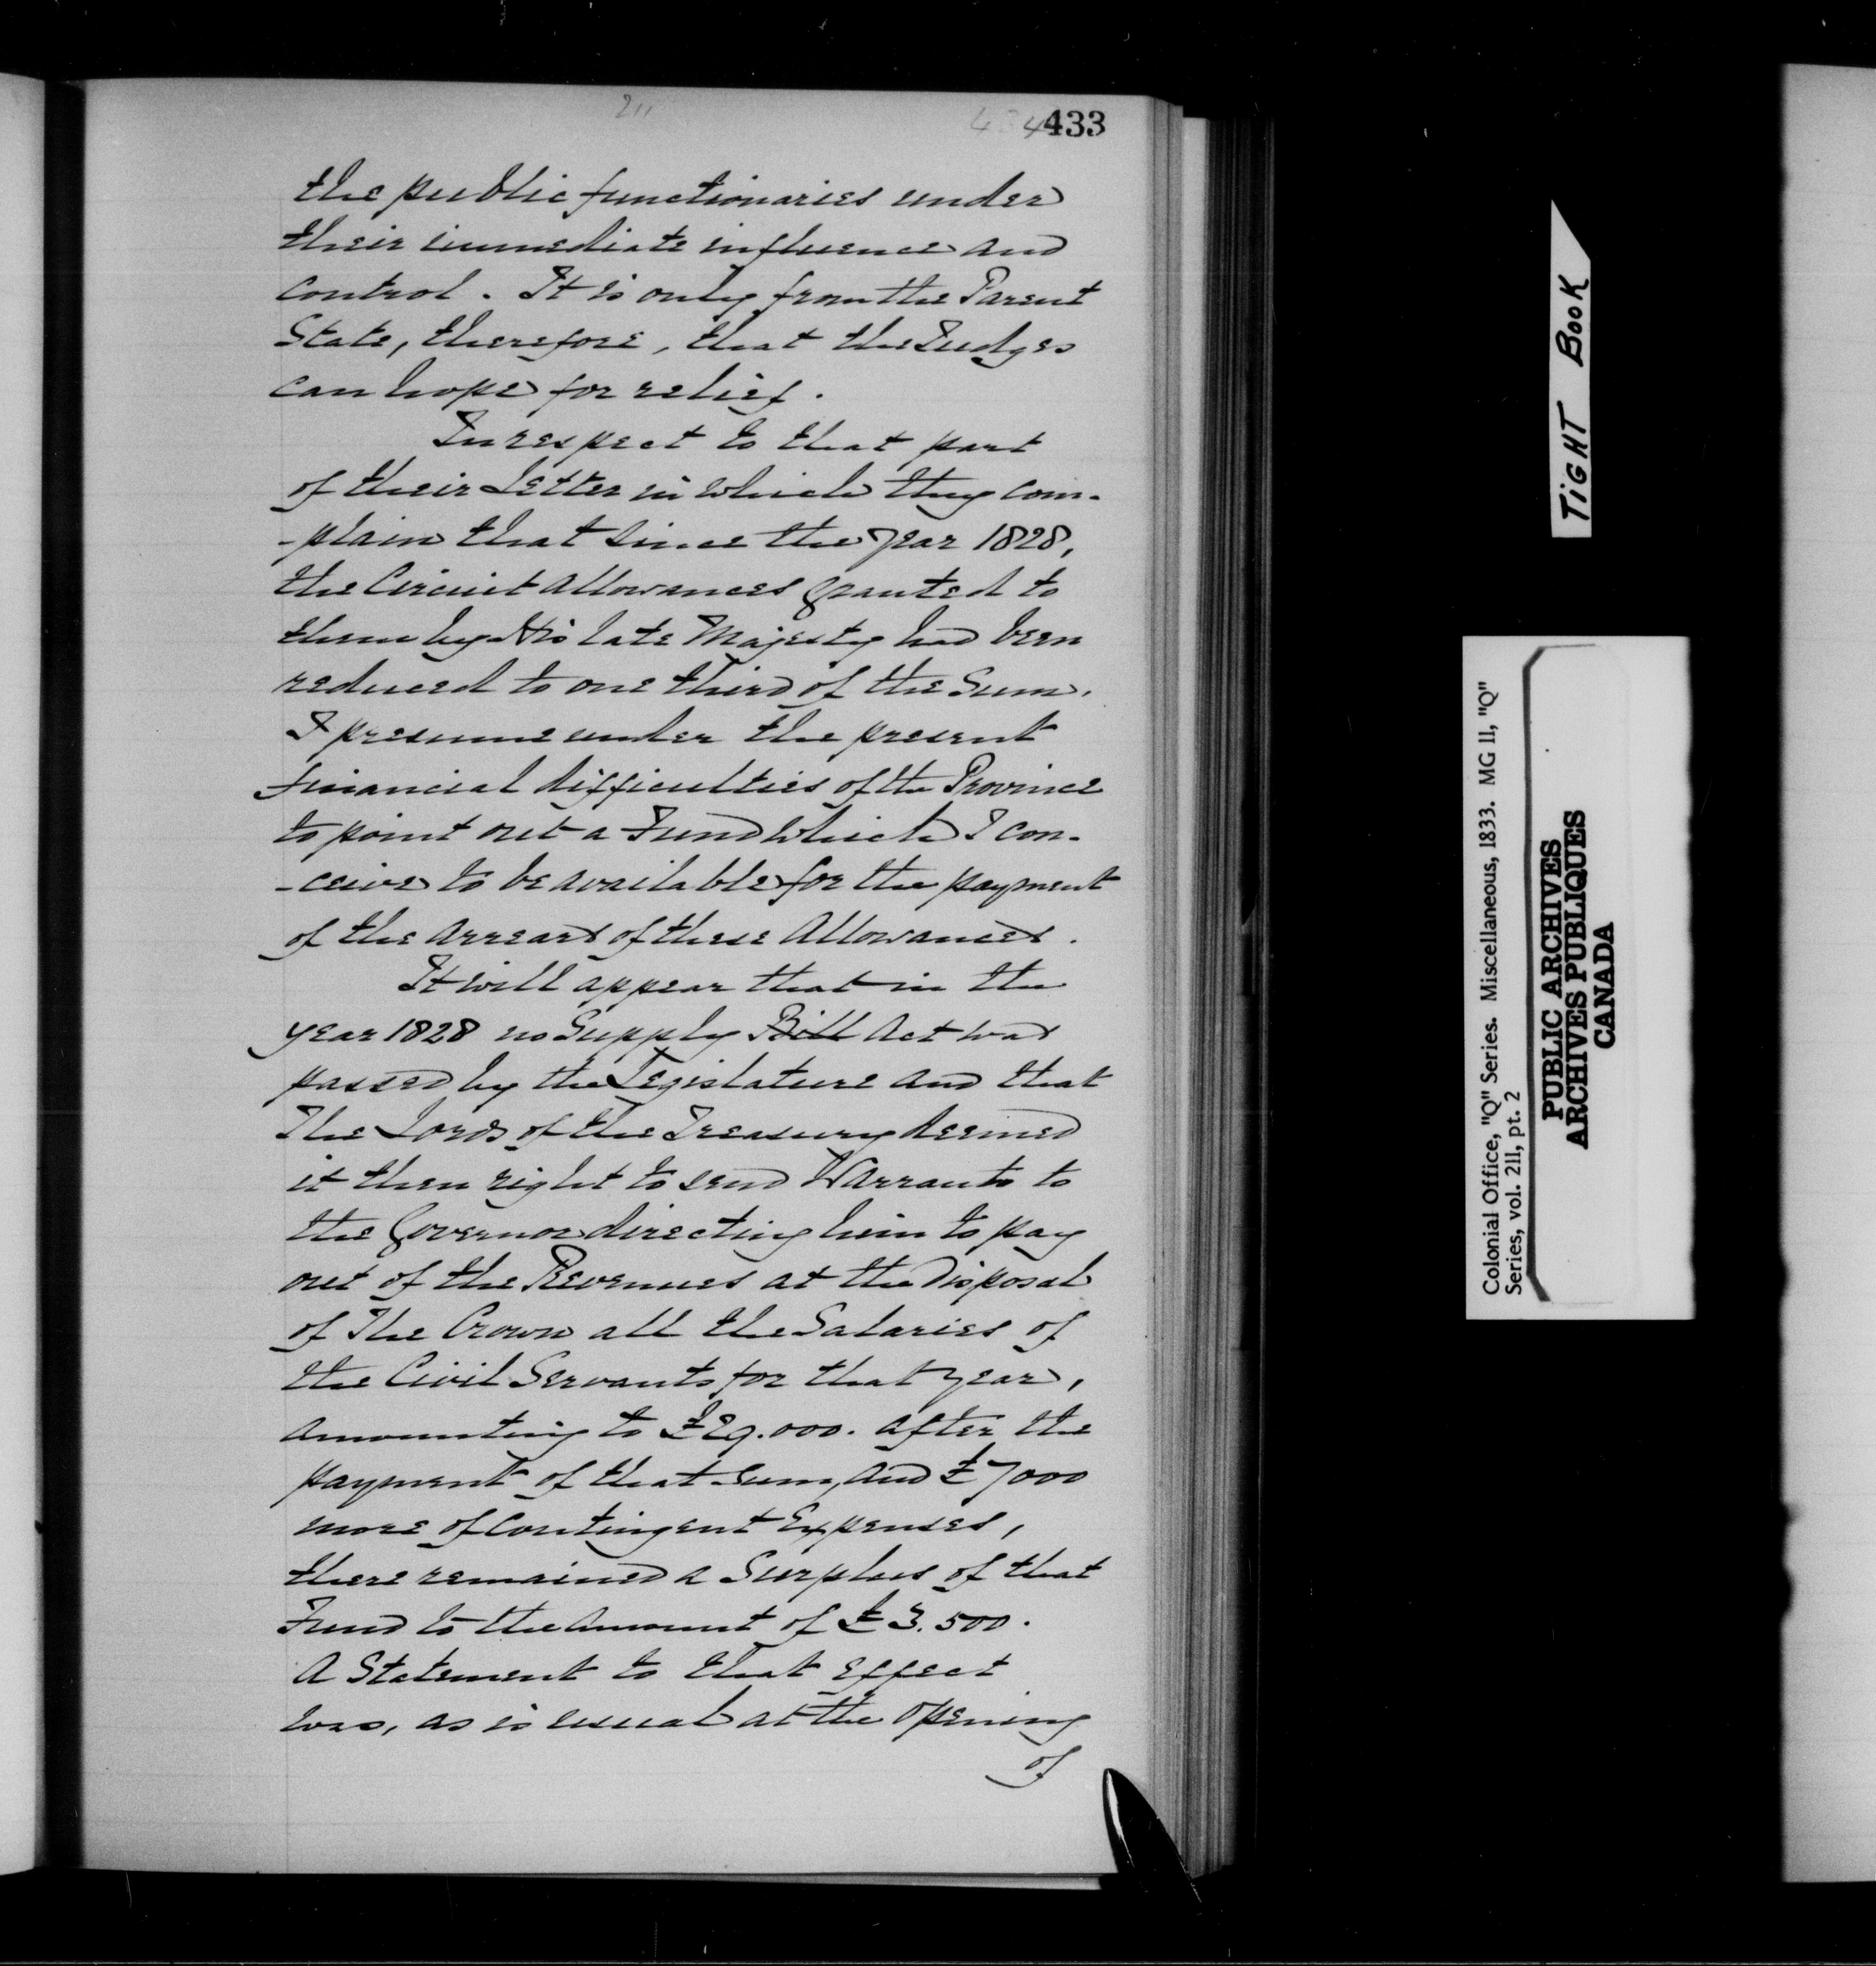 211
433
the public functionaries under
their immediate influence and
control. It is only from the Parent
State, therefore, that the Judges
can hope for relief.
In respect to that part
of their Letter in which they com-
-plain that since the year 1828,
the Circuit allowances granted to
them by His late Majesty had been
reduced to one third of the Sum.
I presume under the present
financial difficulties of the Province
to point out a Fund which I con-
-ceive to be available for the payment
of the arrears of these Allowances.
It will appear that in the
year 1828 no Supply Bill Act was
passed by the Legislature and that
The Lords of the Treasury deemed
it then right to send Warrants to
the Governor directing him to pay
out of the Revenues at the Disposal
of The Crown all the Salaries of
the Civil Servants for that year,
amounting to £29.000. after the
payment of that Sum, and £7000
more of contingent Expenses,
there remained a Surplus of that
Fund to the amount of £3.500.
A Statement to that effect
was, as is usual at the opening
of
TIGHT BOOK
Colonial Office, "Q" Series. Miscellaneous, 1833. MG 11, "Q"
Series, vol. 211, pt. 2
PUBLIC ARCHIVES
ARCHIVES PUBLIQUES
CANADA